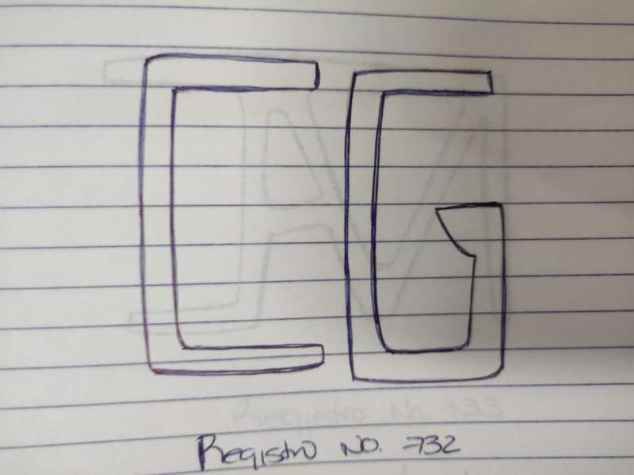 CG
Registro No. 732